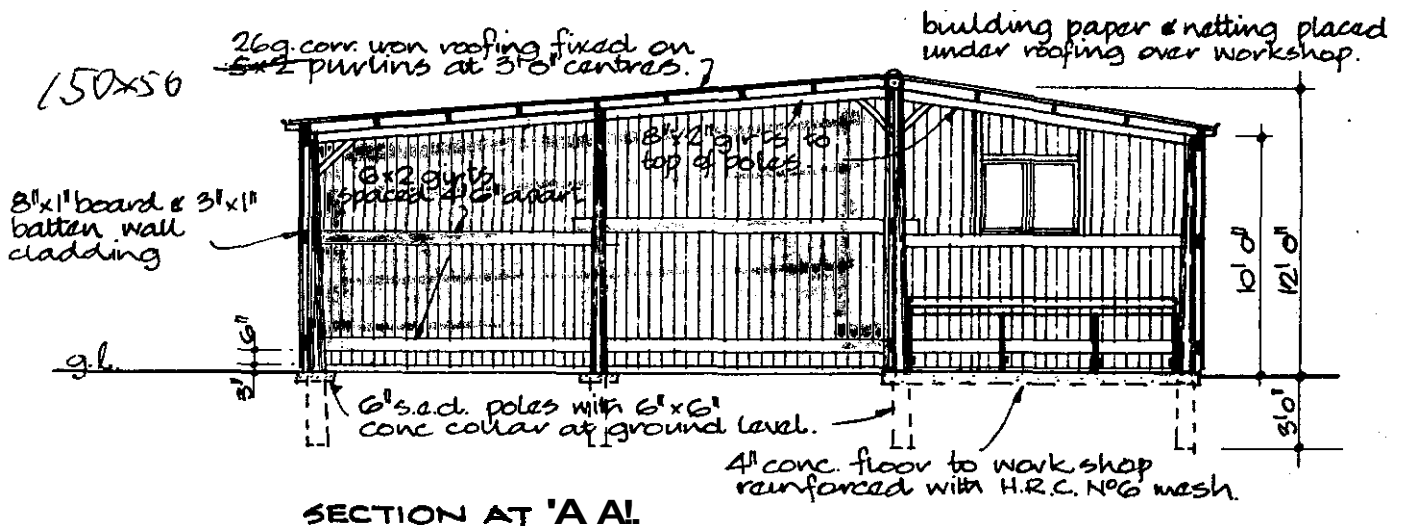 26g. corr. iron roofing fixed on
5x2 purlins at 3'0" centres.
150x50
building paper & netting placed
under roofing over workshop.
8"x2" girts to
top of poles.
6x2 girts
spaced 4'6" apart
8"x1" board & 3"x1"
batten wall
cladding
10'0"
12'0"
6"
3"
g.l.
3'0"
6" s.e.d. poles with 6"x6"
conc collar at ground level.
4" conc. floor to workshop
reinforced with H.R.C. Nº6 mesh.
SECTION AT 'A A'.